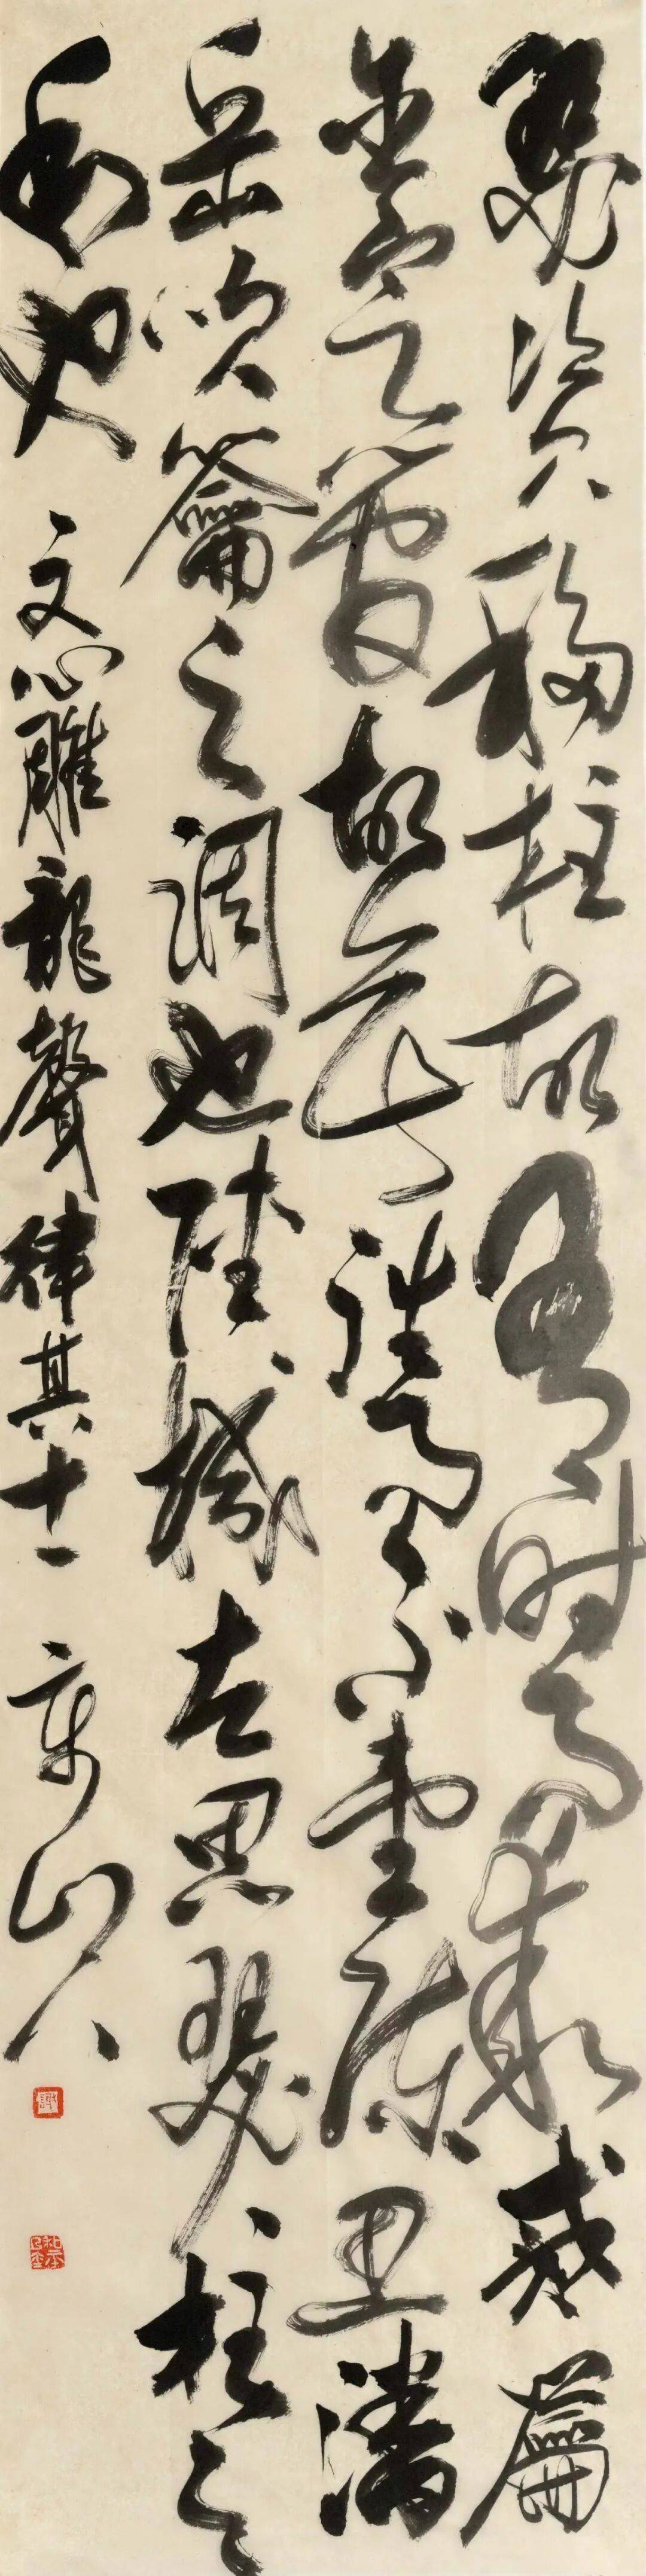 瑟資移柱故有时而乖貳籥
含定管故無往而不壹陳思潘
岳吹籥之調也陸機左思瑟柱之
和也 文心雕龍聲律其十一 山人